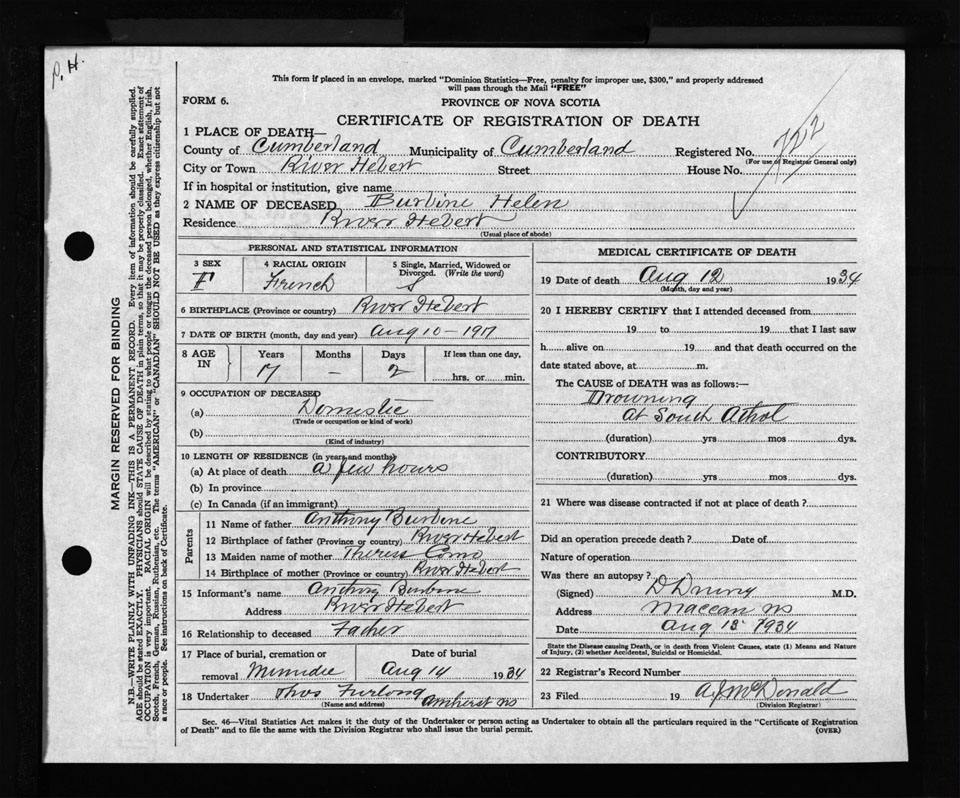 P. H.
This form if placed in an envelope, marked "Dominion Statistics—Free, penalty for improper use, $300," and properly addressed
will pass through the Mail "FREE"
FORM 6.
PROVINCE OF NOVA SCOTIA
CERTIFICATE OF REGISTRATION OF DEATH
1 PLACE OF DEATH—
County of Cumberland Municipality of Cumberland Registered No. 722
(For use of Registrar General only)
City or Town River Hebert Street House No.
If in hospital or institution, give name
2 NAME OF DECEASED Burbine Helen
Residence River Hebert
(Usual place of abode)
PERSONAL AND STATISTICAL INFORMATION
3 SEX 4 RACIAL ORIGIN 5 Single, Married, Widowed or
Divorced. (Write the word)
F French S
6 BIRTHPLACE (Province or country) River Hebert
7 DATE OF BIRTH (month, day and year) Aug 10 - 1917
8 AGE IN Years Months Days If less than one day,
17 — 2 hrs. or min.
9 OCCUPATION OF DECEASED
(a) Domestic
(Trade or occupation or kind of work)
(b)
(Kind of industry)
10 LENGTH OF RESIDENCE (in years and months)
(a) At place of death a few hours
(b) In province
(c) In Canada (if an immigrant)
Parents
11 Name of father Anthony Burbine
12 Birthplace of father (Province or country) River Hebert
13 Maiden name of mother Theress Como
14 Birthplace of mother (Province or country) River Hebert
15 Informant's name Anthony Burbine
Address River Hebert
16 Relationship to deceased Father
17 Place of burial, cremation or Date of burial
removal Minudie Aug 14 1934
18 Undertaker Thos Furlong Amherst NS
(Name and address)
MEDICAL CERTIFICATE OF DEATH
19 Date of death Aug 12 1934
(Month, day and year)
20 I HEREBY CERTIFY that I attended deceased from
19 to 19 that I last saw
h alive on 19 and that death occurred on the
date stated above, at m.
The CAUSE of DEATH was as follows:—
Drowning
at South Athol
(duration) yrs mos dys.
CONTRIBUTORY
(duration) yrs mos dys.
21 Where was disease contracted if not at place of death?
Did an operation precede death? Date of
Nature of operation
Was there an autopsy?
(Signed) M.D.
Address Maccan NS
Date Aug 13 1934
State the Disease causing Death, or in death from Violent Causes, state (1) Means and Nature
of Injury, (2) whether Accidental, Suicidal or Homicidal.
22 Registrar's Record Number
23 Filed 19 A J McDonald
(Division Registrar)
Sec. 46—Vital Statistics Act makes it the duty of the Undertaker or person acting as Undertaker to obtain all the particulars required in the "Certificate of Registration
of Death" and to file the same with the Division Registrar who shall issue the burial permit.
(OVER)
MARGIN RESERVED FOR BINDING
N.B.—WRITE PLAINLY WITH UNFADING INK—THIS IS A PERMANENT RECORD. Every item of information should be carefully supplied.
AGE should be stated EXACTLY. PHYSICIANS should STATE CAUSE OF DEATH in plain terms, so that it may be properly classified. Exact statement of
OCCUPATION is very important. RACIAL ORIGIN will be described by stating to what people or tongue the deceased person belonged, whether English, Irish,
Scotch, French, German, Russian, Ruthenian, etc. The terms "AMERICAN" or "CANADIAN" SHOULD NOT BE USED as they express citizenship but not
a race or people. See instructions on back of Certificate.